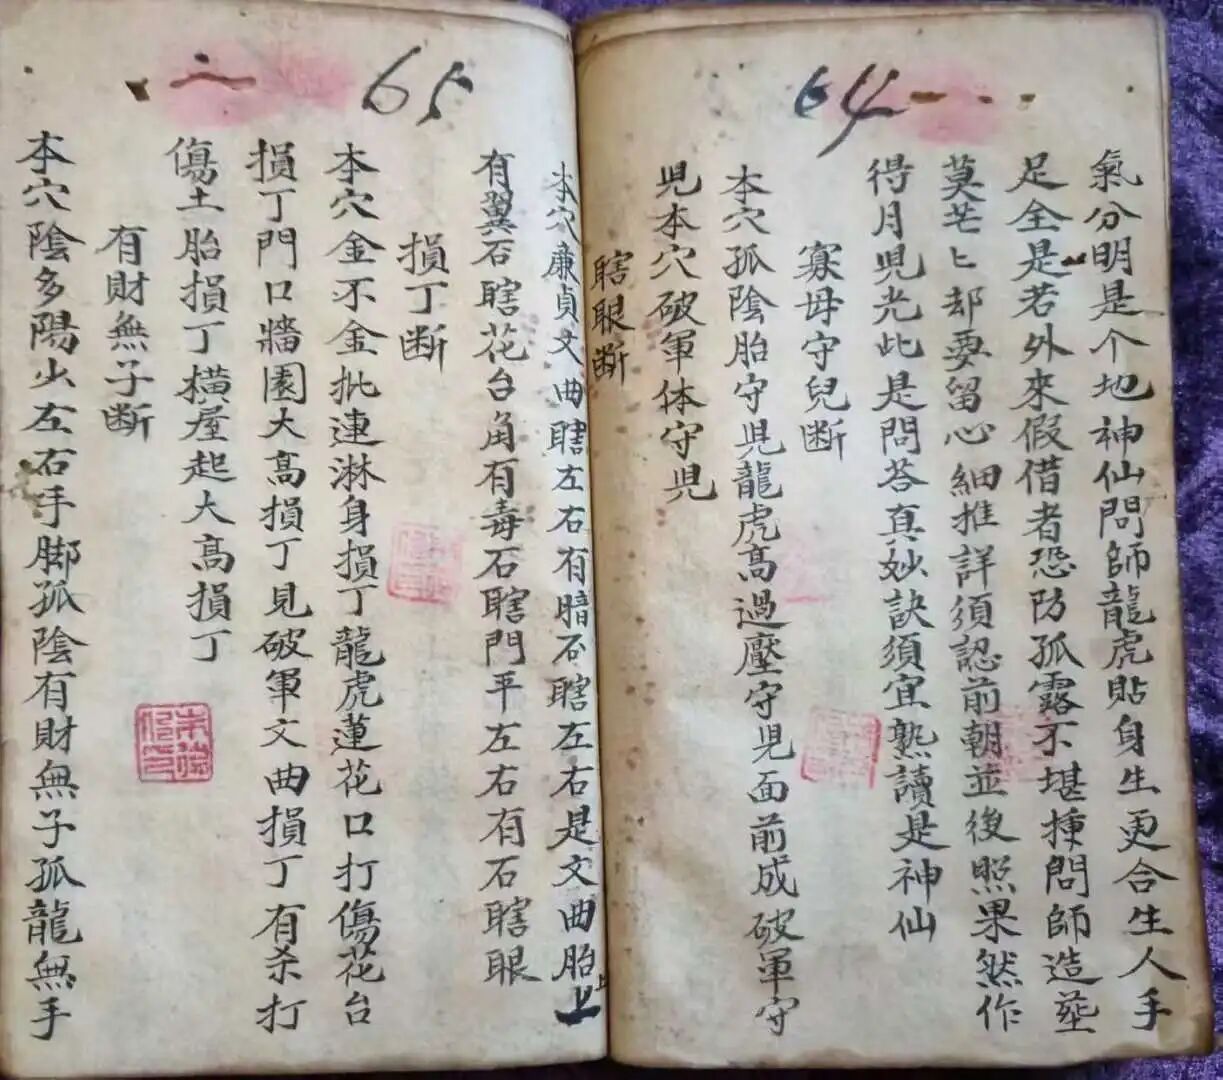 64
氣分明是个地神仙問師龍虎貼身生更合生人手
足全是若外來假借者恐防孤露不堪揀問師造塟
莫茫匕却要留心細推詳須認前朝並後照果然作
得月児光此是問答真妙訣須宜熟讀是神仙
寡母守兒断
本穴孤陰胎守児龍虎高過壓守児面前成破軍守
児本穴破軍体守児
瞎眼断
65
本穴廉貞文曲瞎左右有暗石瞎左右是文曲胎上
有翼石瞎花台角有毒石瞎門平左右有石瞎眼
損丁断
本穴金不金批連淋身損丁龍虎蓮花口打傷花台
損丁門口牆園大高損丁見破軍文曲損丁有杀打
傷土胎損丁橫屋起大高損丁
有財無子断
本穴陰多陽少左右手脚孤陰有財無子孤龍無手